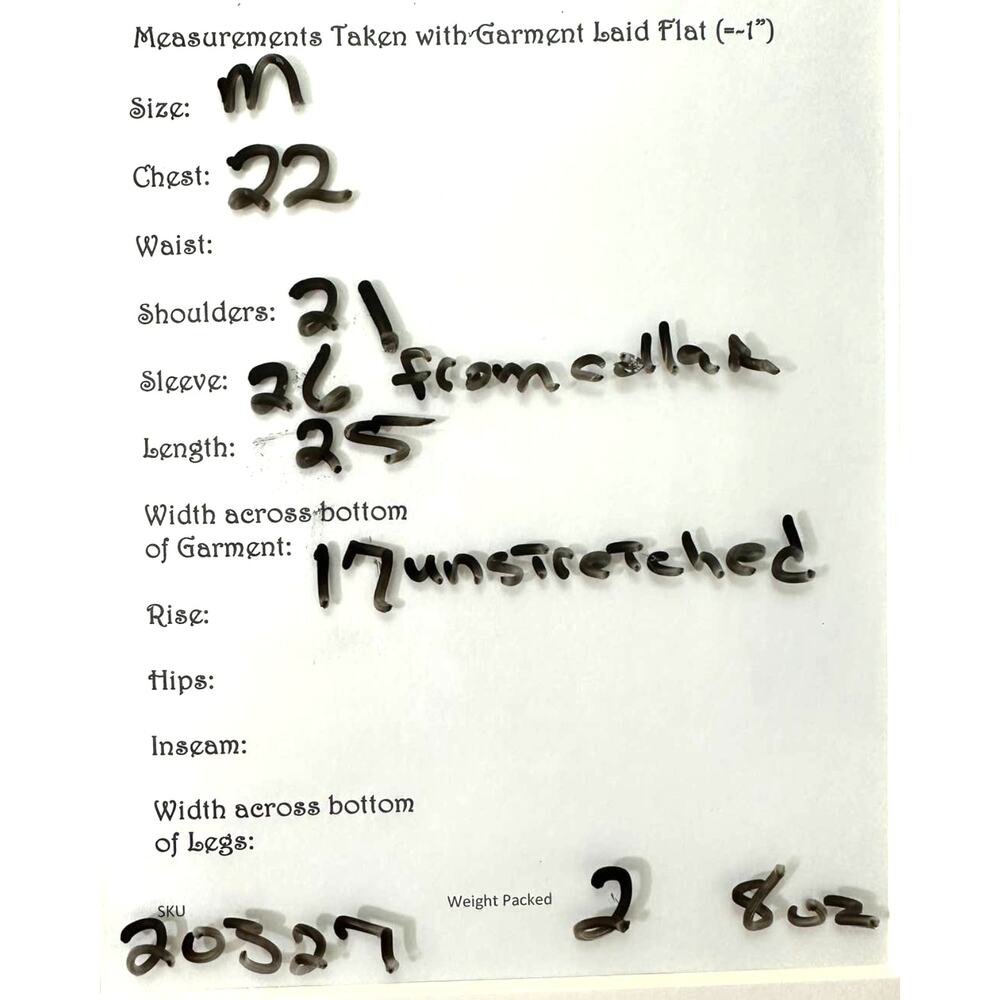 Measurements Taken with Garment Laid Flat (=~1”)
Size: M
Chest: 22
Waist:
Shoulders: 21
Sleeve: 26 from collar
Length: 25
Width across bottom
of Garment: 17 unstretched
Rise:
Hips:
Inseam:
Width across bottom
of Legs:
SKU Weight Packed 2 8oz
20327